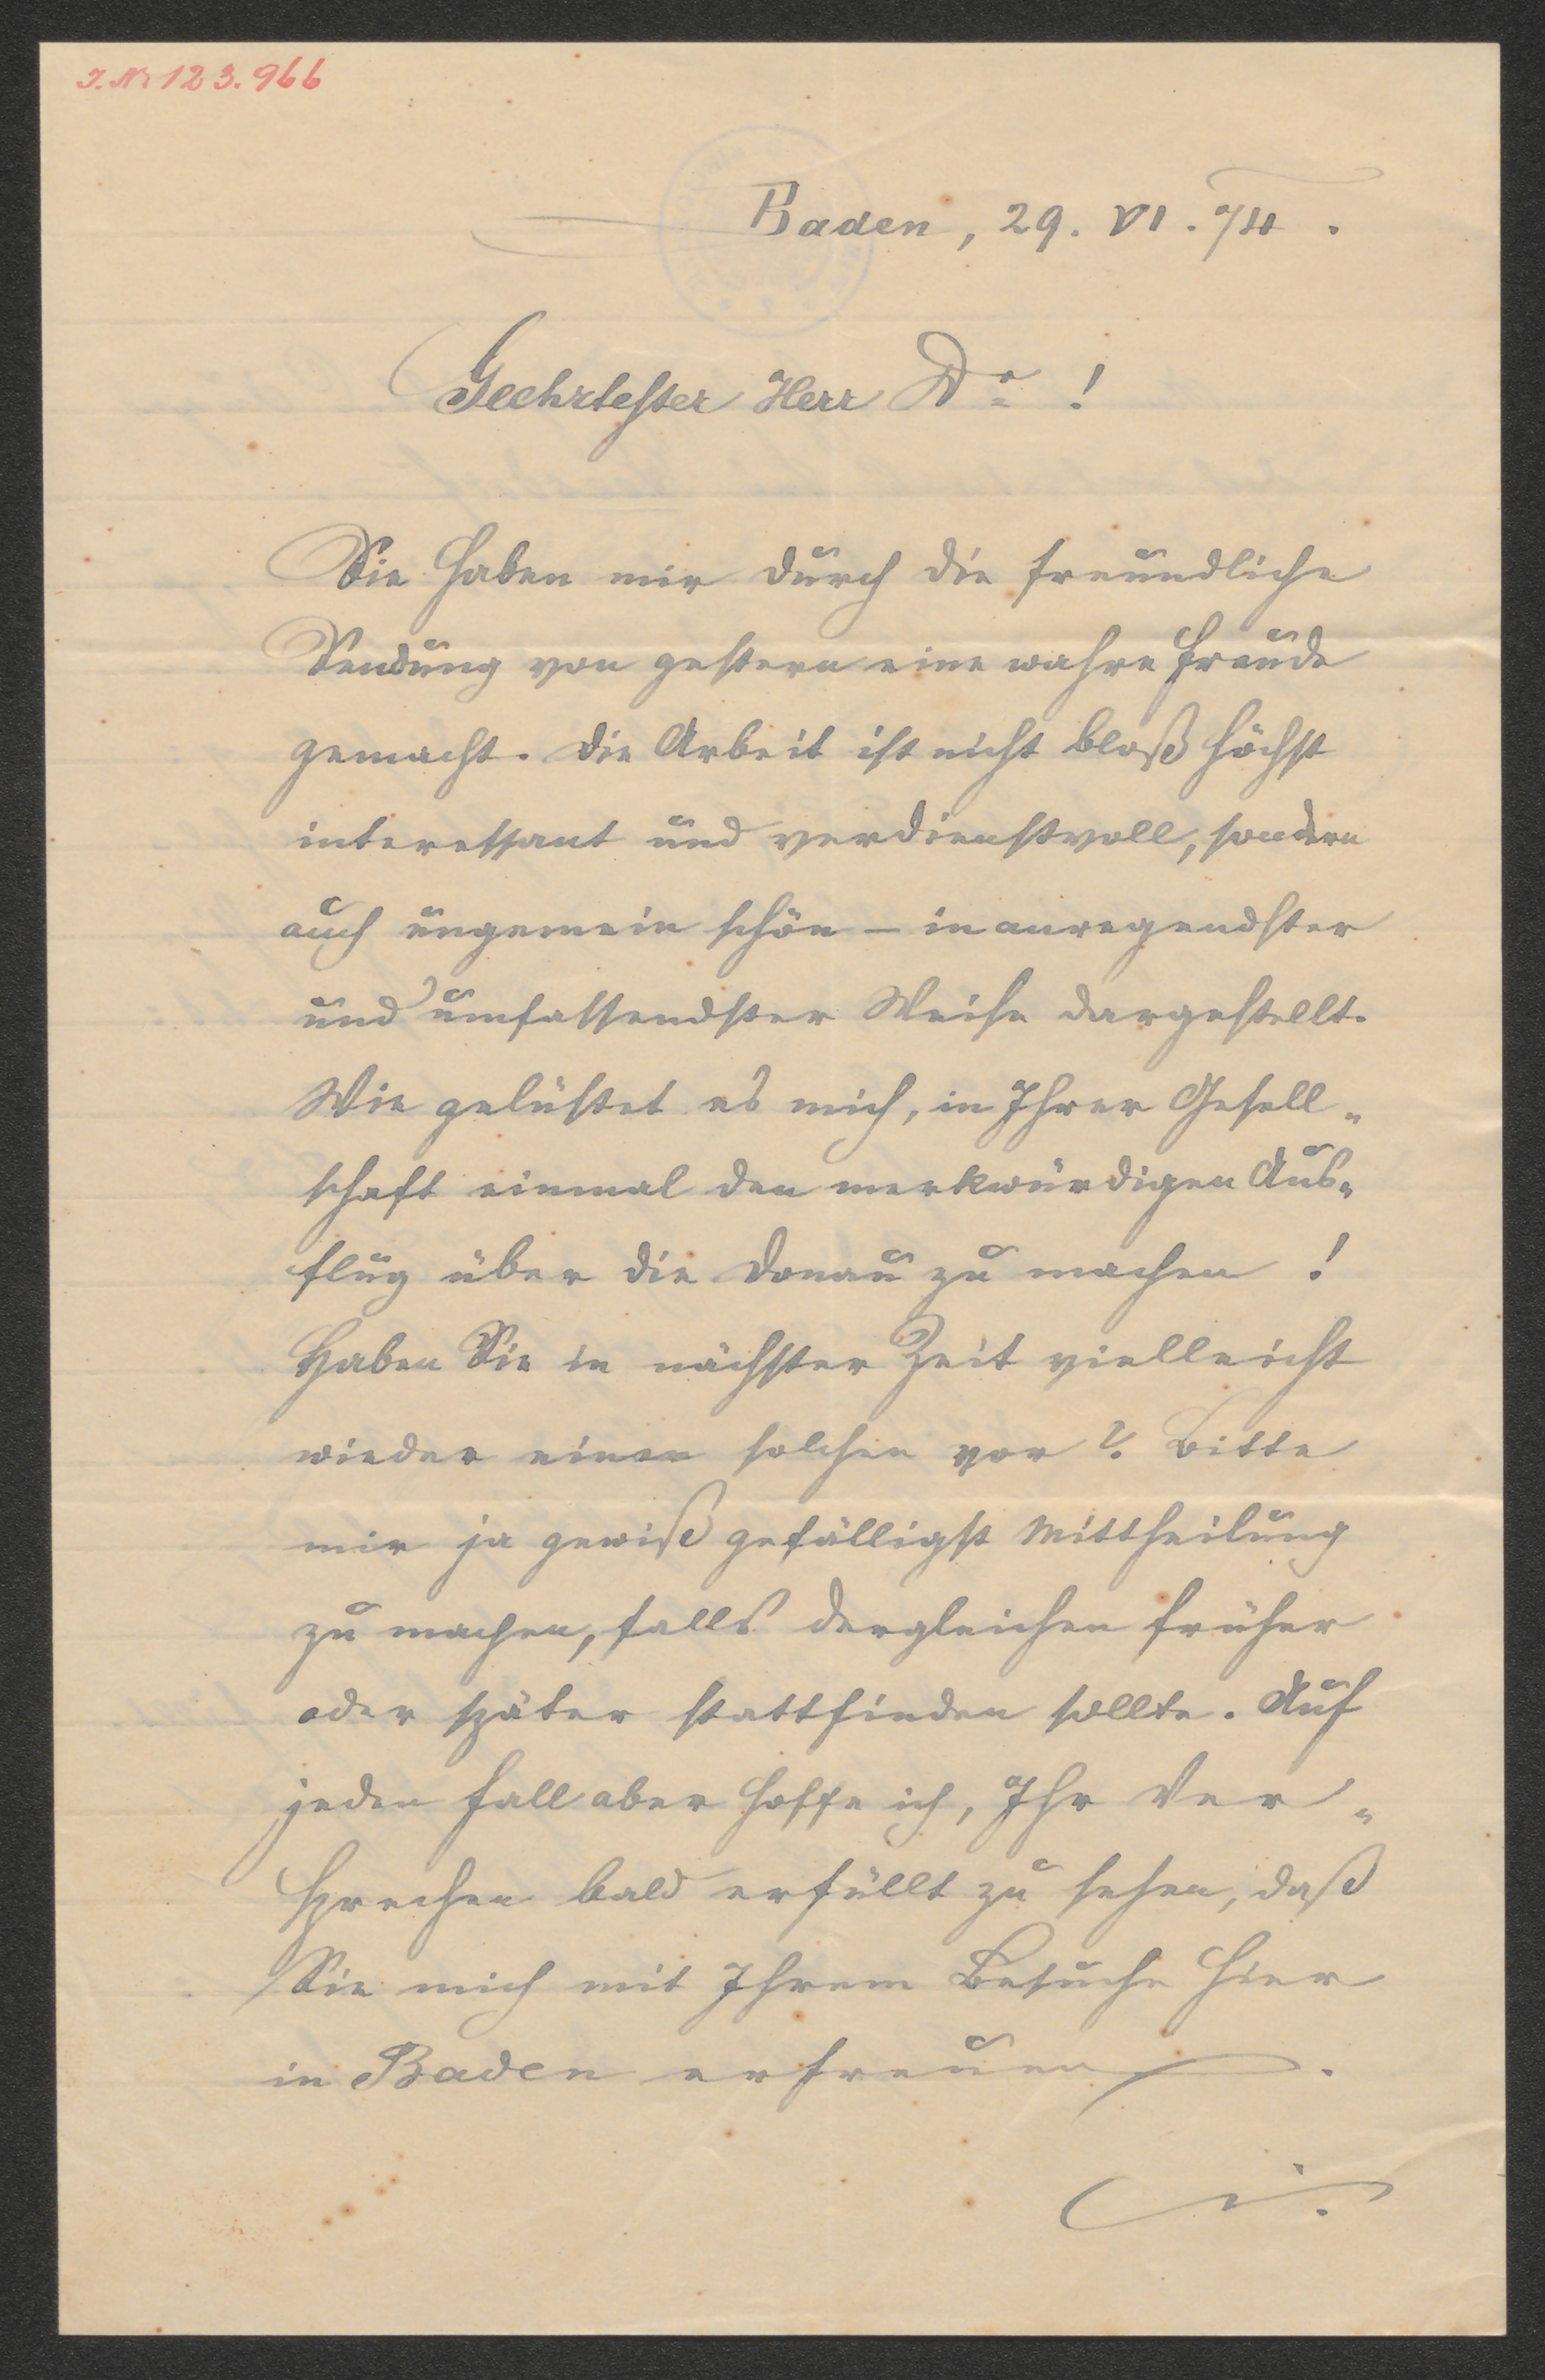 J. Nr 123.966
Baden, 29. VI. 74.
Geehrtester Herr Dr!
Sie haben mir durch die freundliche
Sendung von gestern eine wahre Freude
gemacht. Die Arbeit ist nicht bloß höchst
interessant und verdienstvoll, sondern
auch ungemein schön – in anregendster
und umfassendster Weise dargestellt.
Wie gelüstet es mich, in Ihrer Gesell„
schaft einmal den merkwürdigen Aus„
flug über die Donau zu machen!
Haben Sie in nächster Zeit vielleicht
wieder einen solchen vor? Bitte
mir ja gewiß gefälligst Mittheilung
zu machen, falls dergleichen früher
oder später stattfinden sollte. Auf
jeden Fall aber hoffe ich, Ihr Ver„
sprechen bald erfüllt zu sehen, daß
Sie mich mit Ihrem Besuche hier
in Baden erfreuen.